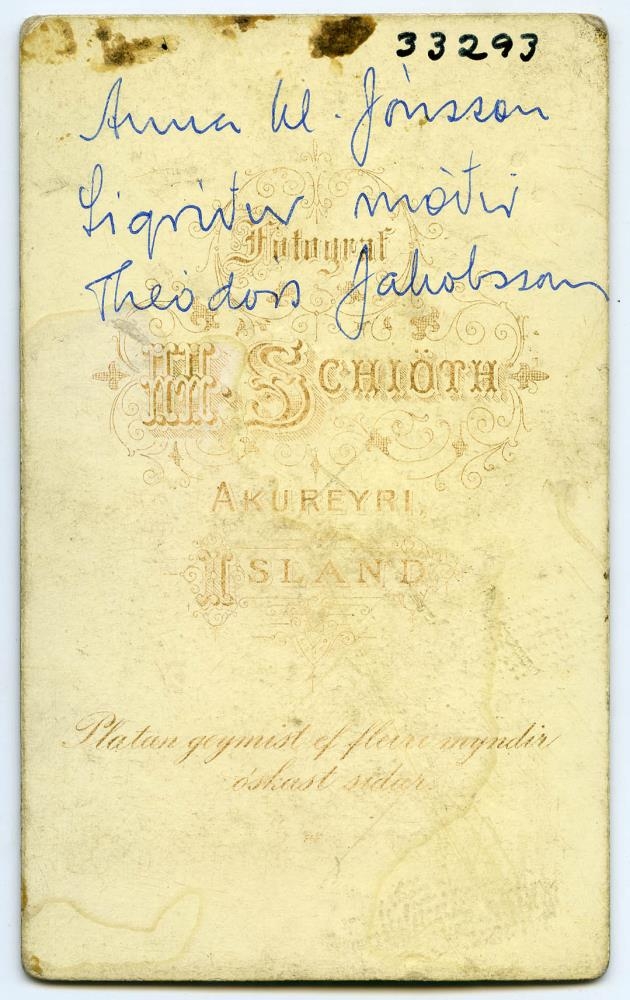 33293
Anna Kl. Jónsson
Sigríður móðir
Theódórs Jakobssonar
Fotograf
H. Schiöth
Akureyri,
Island
Platan geymist ef fleiri myndir
óskast síðar.